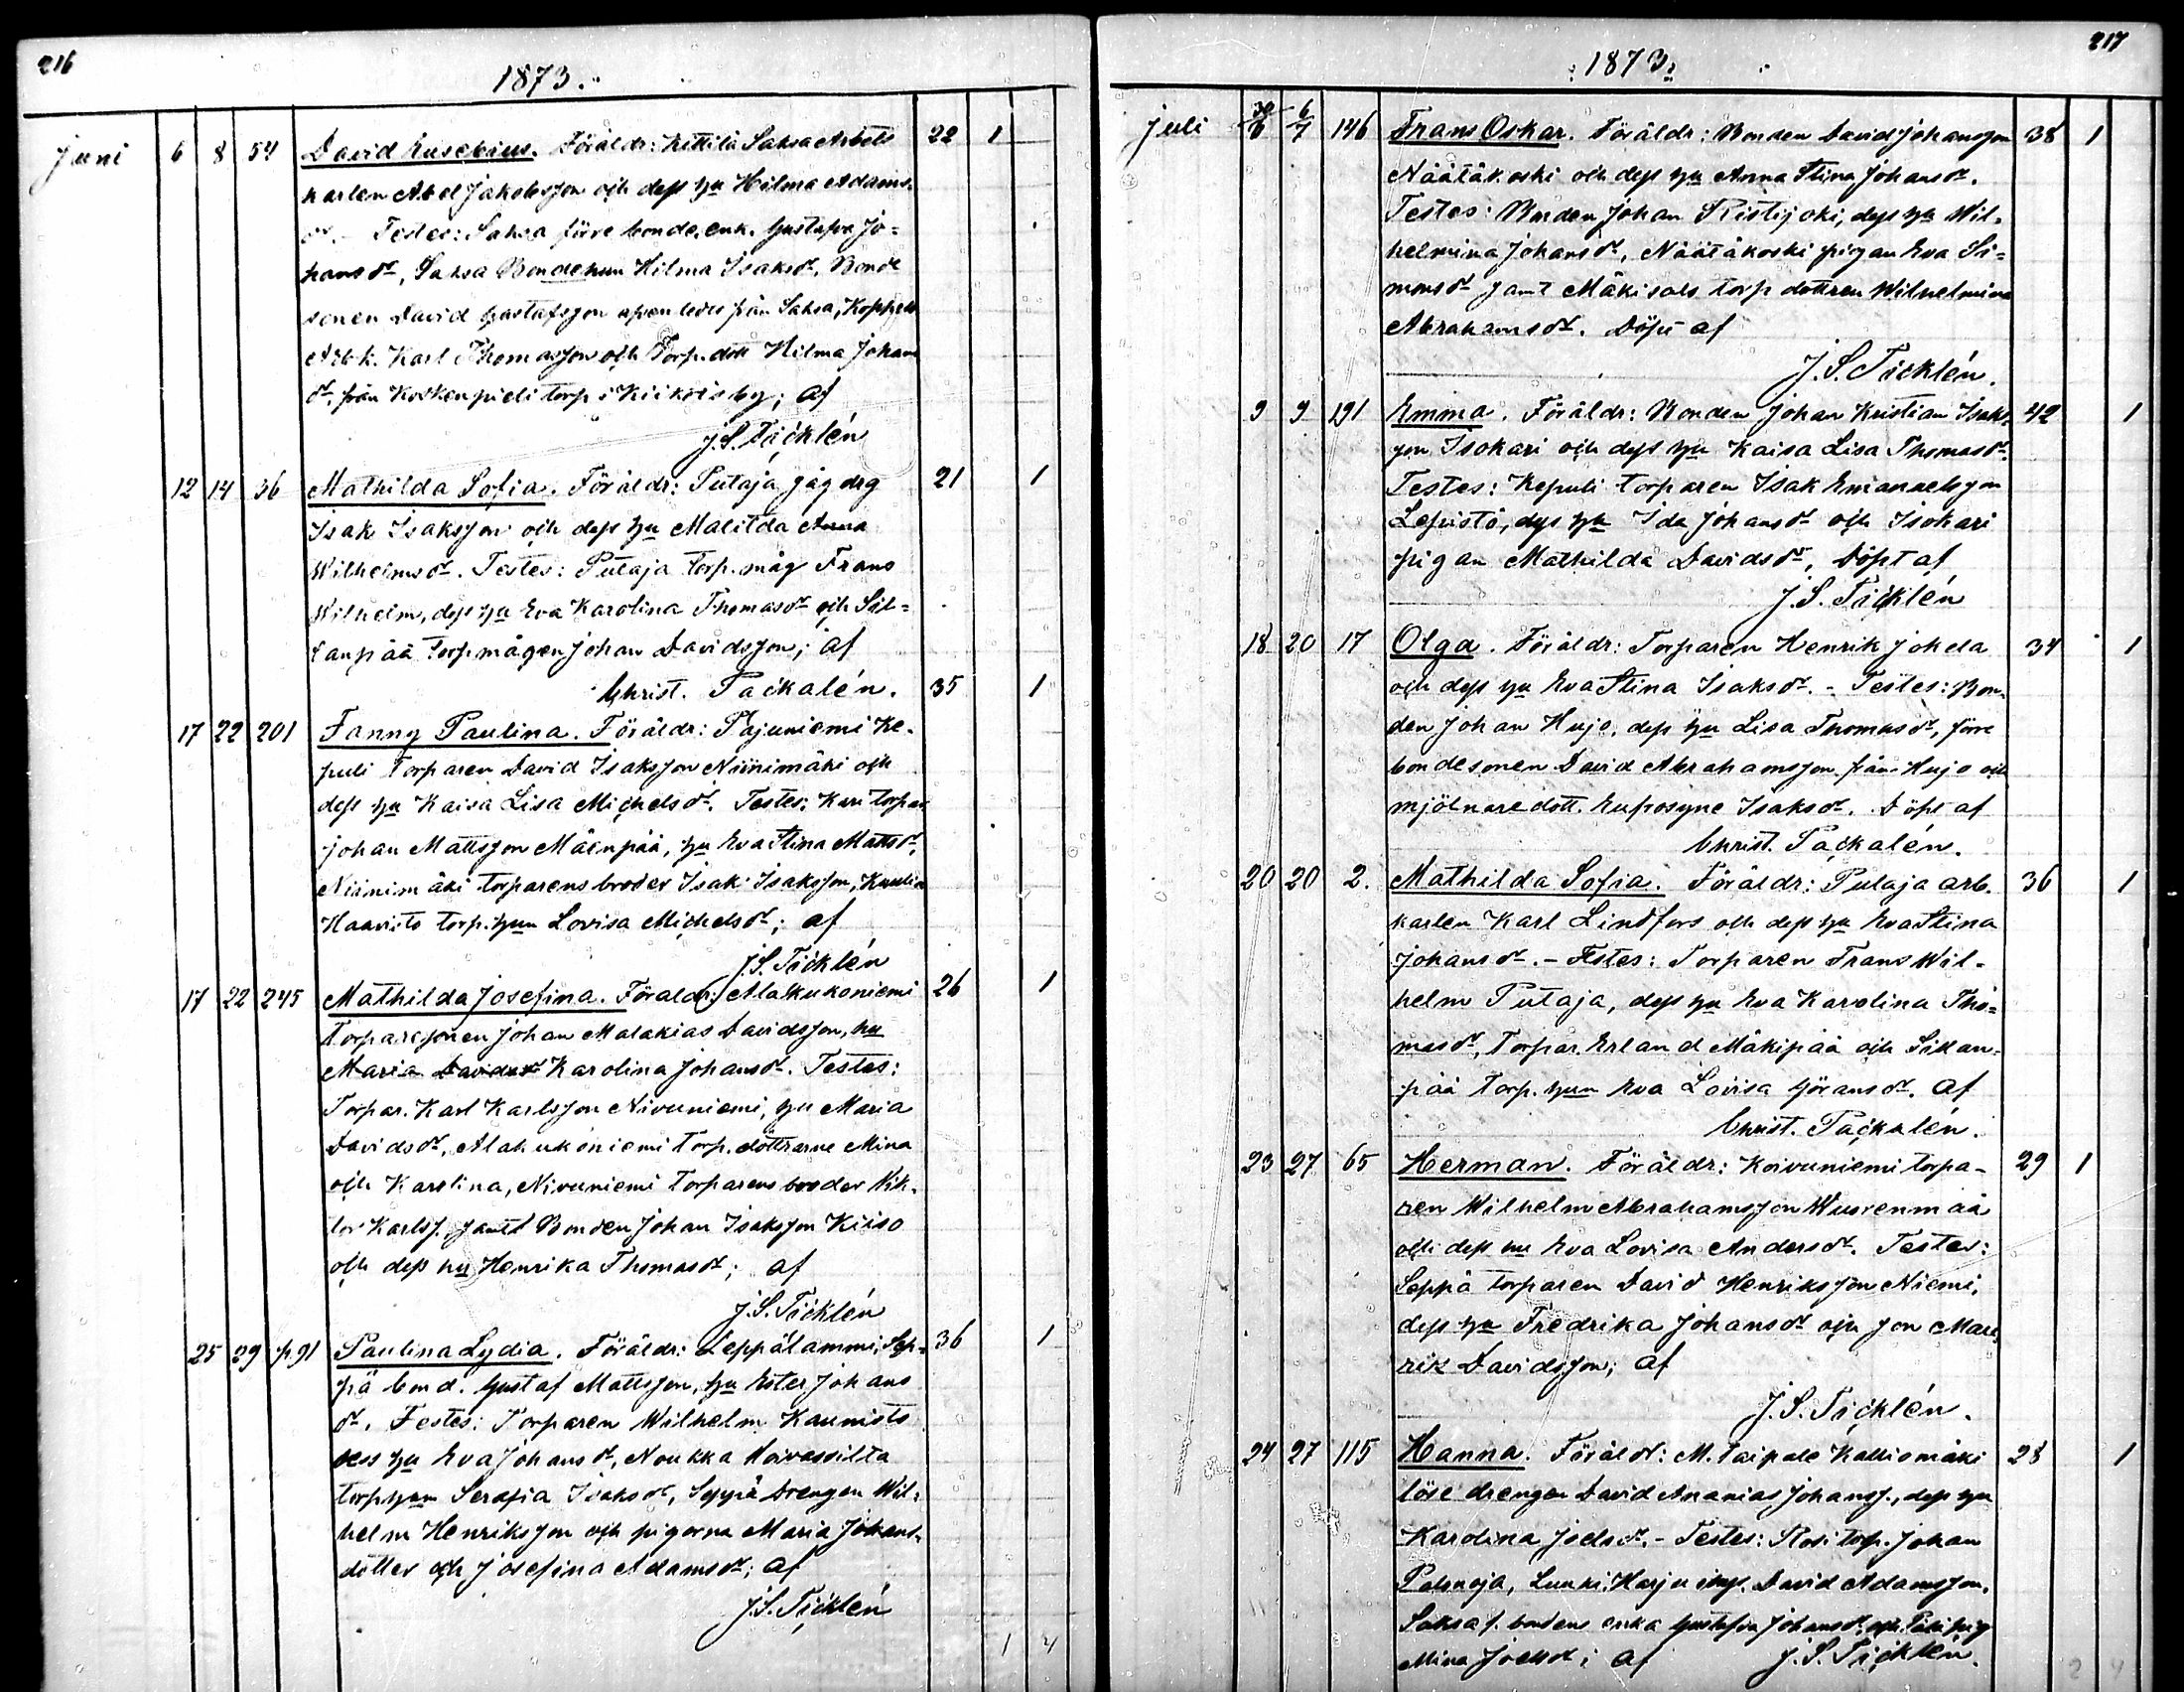 216
1873.
Juni 6 8 54 David Eusebius. Föräldr: Kettilä Saksa Arbets 22 1
karlen Abel Jakobsson och dess hu Hilma Adams-
dr. - Testes: Saksa förre bonde enk. Gustafva Jo=
hansdr, Saksa Bondehun Hilma Isaksdr, Bonde
sonen David Gustafsson från Saksa, Koppelo
Arb.k. Karl Thomasson och Torp.dott Hilma Johans
dr, från Koskenpieli torp i Kiikois by; af
J.S. Ticklén
12 14 36 Mathilda Sofia. Föräldr: Putaja jäg drg 21 1
Isak Isaksson och dess hu Malitda Anna
Wilhelmsdr. Testes: Putaja torp.måg Frans
Wilhelm, dess hu Eva Karolina Thomasdr och Sil=
lanpää torpmågen Johan Davidsson; af
Christ. Packalén. 35 1
17 22 201 Fanny Paulina. Föräldr: Pajuniemi Ke-
puli Torparen David Isaksson Niinimäki och
dess hu Kaisa Lisa Michelsdr. Testes: Kari torpar.
Johan Mattsson Mäenpää, hu Eva Stina Mattsdr,
Niinimäki torparens broder Isak Isaksson,
Haavisto torp.hun Lovisa Michelsdr; af
J.S. Ticklén
17 22 245 Mathilda Josefina. Föräldr: Alaskukoniemi 26 1
Torparesonen Johan Malakias Davidsson, hu
Maria Davidsdr Karolina Johansdr. Testes:
Torpar. Karl Karlsson Nivuniemi, hu Maria
Davidsdr, Alakukoniemi Torp. döttrarne Mina
och Karolina, Nivuniemi Torparens broder Vik-
tor Karlss. samt Bonden Johan Isaksson Kiiso
och dess hu Henrika Thomasdr; af
J.S. Ticklén
25 29 p.91 Paulina Lydia. Föräldr: Leppälammi, Sep- 36 1
pä bond. Gustaf Mattsson, hu Ester Johans
dr. Testes: Torparen Wilhelm Kaunisto
dess hu Eva Johansdr, Noukka Koivusilta
torphun Serafia Isaksdr, Seppä Drengen Wil-
helm Henriksson och pigorna Maria Johans-
dotter och Josefina Adamsdr; af
J.S. Ticklén
1 4
217
1873.
Juli 30/6 6/7 146 Frans Oskar. Föräldr: Bonden David Johansson 38 1
Näätäkoski och dess hu Anna Stina Johansdr.
Testes: Bonden Johan Ristijoki, dess hu Wil-
helmina Johansdr, Näätäkoski pigan Eva Si=
monsdr samt Mäkisalo torp dottren Wilhelmina
Abrahamsdr. Döpt af
J.S. Ticklén.
9 9 191 Emma. Föräldr: Bonden Johan Kristian Isaks= 42 1
son Isokari och dess hu Kaisa Lisa Thomasdr.
Testes: Kepuli torparen Isak Emanuelsson
Lepistö, dess hu Ida Johansdr och Isokari
pigan Mathilda Davidsdr, Döpt af
J.S. Ticklén
18 20 17 Olga. Föräldr: Torparen Henrik Jokela 34 1
och dess hu Eva Stina Isaksdr. - Testes: Bon-
den Johan Hujo, dess hu Lisa Thomasdr, förre
bondesonen David Abrahamsson från Hujo och
mjölnaredott. Euprosyne Isaksdr. Döpt af
Christ. Packalén.
20 20 2. Mathilda Sofia. Föräldr: Putaja arb. 36 1
karlen Karl Lindfors och dess hu Eva Stina
Johansdr. - Testes: Torparen Frans Wil-
helm Putaja, dess hu Eva Karolina Tho=
masdr, Torpar. Erland Mäkipää och Sillan-
pää torp. hun Eva Lovisa Göransdr. af
Christ. Packalén.
23 27 65 Herman. Föräldr: Koivuniemi torpa- 29 1
ren Wilhelm Abrahamsson Wuorenmaa
och dess hu Eva Lovisa Andersdr. Testes:
Seppä torparen David Henriksson Niemi,
dess hu Fredrika Johansdr och son Mau-
rik Davidsson; af
J.S. Ticklén.
24 27 115 Hanna. Föräldr: M. Taipale Kalliomäki 28 1
löse drengen David Ananias Johanss., dess hu
Karolina Joelsdr. - Testes: Rosi torp. Johan
Palonoja, Lunki, Harju David Adamsson,
Saksa f. bondens enka Gustafva Johansdr, och pig
Mina Joelsdr; af J.S. Ticklén.
2 4